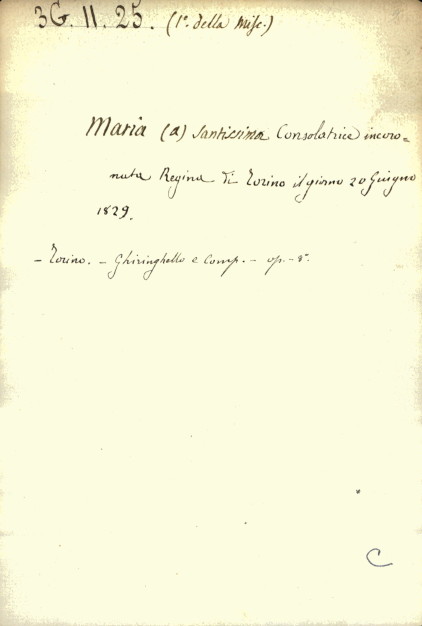 3G. II. 25. (1°. della Misc.)
Maria (a) Santissima Consolatrice incoro=
nata Regina di Torino il giorno 20 Giugno
1829.
- Torino. - Ghiringhello e Comp. - op. - 8°.
C